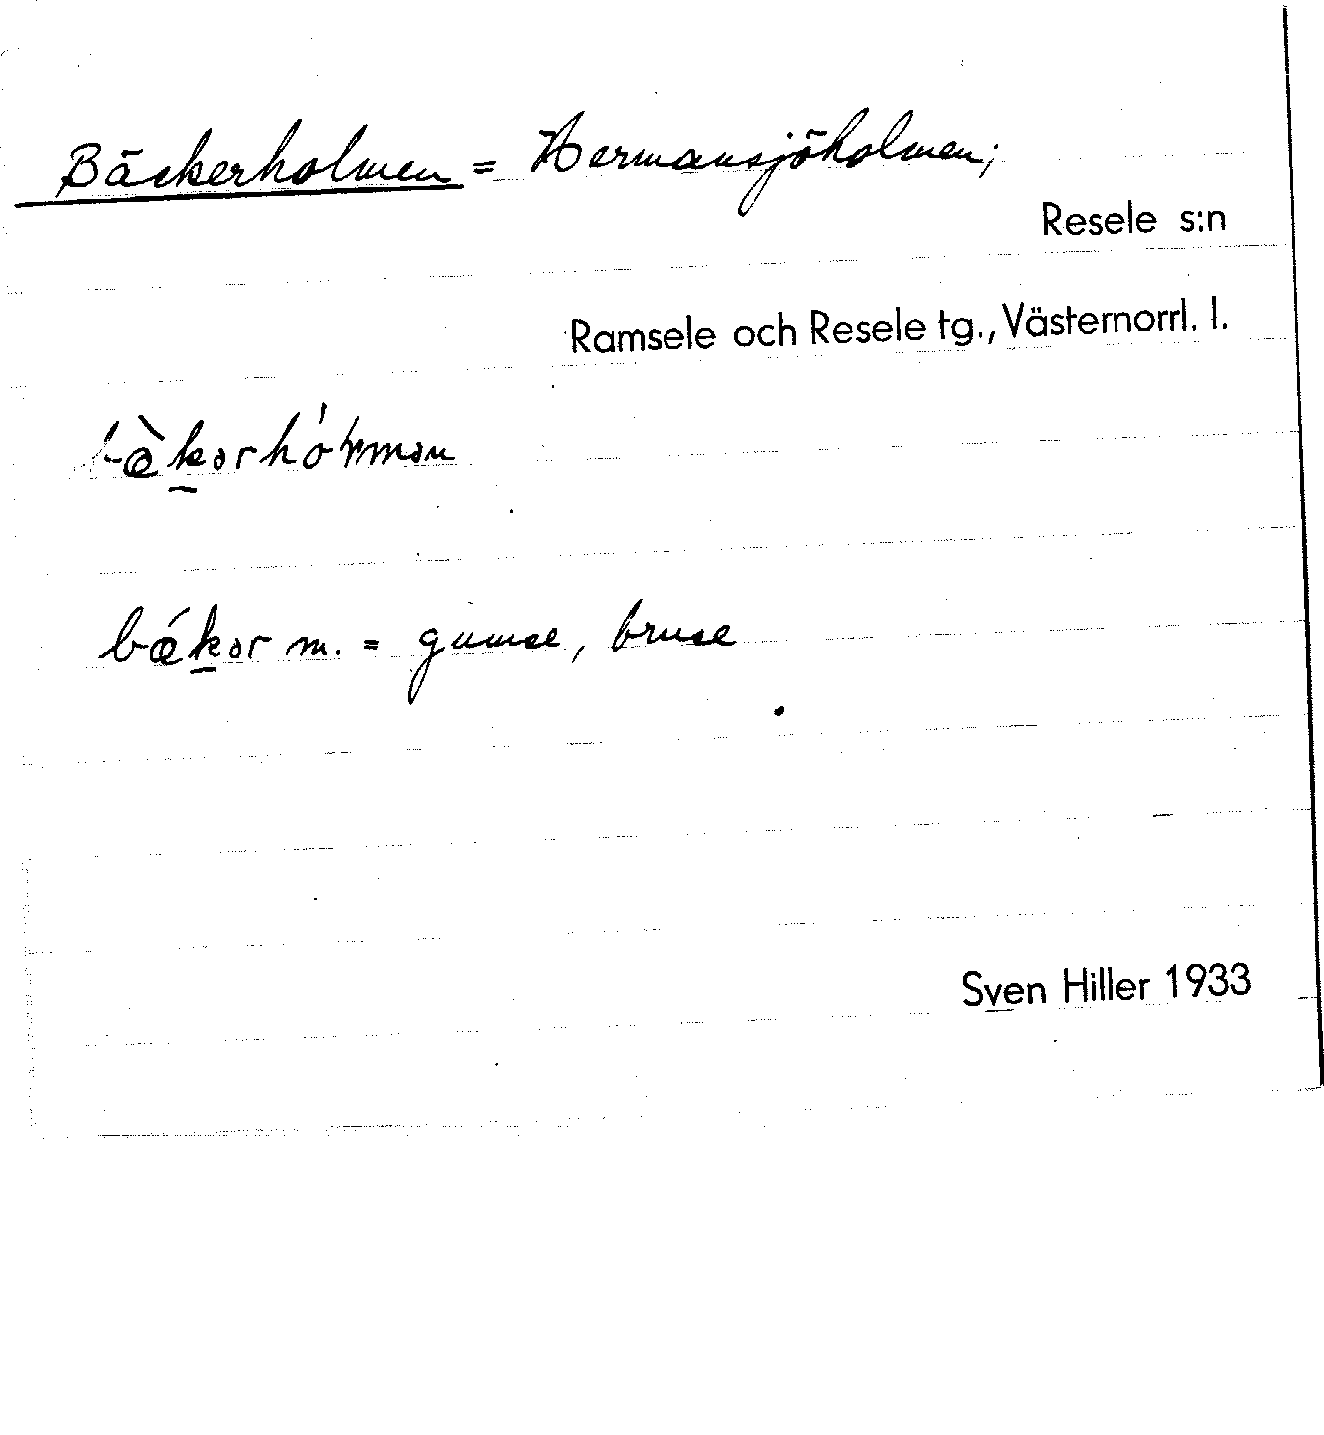 Bäckerholmen = Hermansjöholmen;
Resele s:n
Ramsele och Resele tg., Västernorrl. l.
bæ̀kərhóɽmən
bǽkər m. = gumse, bruse
Sven Hiller 1933